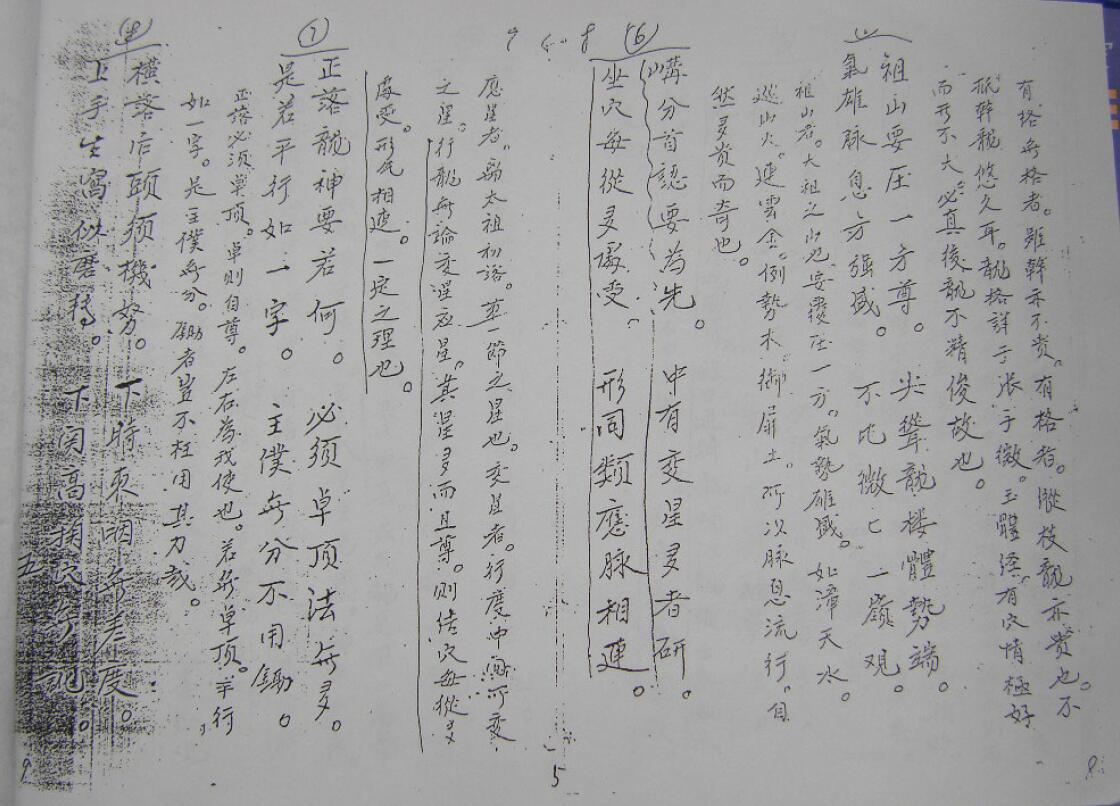 有格無格者。雖幹亦不貴。有格者。縱枝龍亦貴也。不
孤幹龍悠久耳。龍格詳于張子微。玉髓經。有穴情極好
而形不大。必真後龍不精俊故也。
祖山要压一方尊。尖聳龍楼體勢端。
氣雄脉息方强盛。不比微亡一嶺观。
祖山者。大祖之山也。要壓压一方。氣勢雄盛。如漳天水。
巡山火。連雲金。倒勢木。御屏土。所以脉息流行。自
然多贵而奇也。
(6)
嶹分首認要為先。中有变星多者研。
坐穴每從多處受。形同類應脉相連。
應星者。為太祖初落。第一節之星也。变星者。行度中間所变
之星。行龍無論变星应星。其星多而且尊。则结穴每從多
處受。形气相連。一定之理也。
7
正落龍神要若何。必须卓顶法無多。
是若平行如一字。主僕無分不用鋤。
正落必须卓顶。卓則自尊。左右為我使也。若無卓顶。平行
如一字。是主僕無分。鋤者岂不枉用其力哉。
横落后頭须機努。下時束咽無差度。
上手生窩似磨转。下関高掬穴
9
5